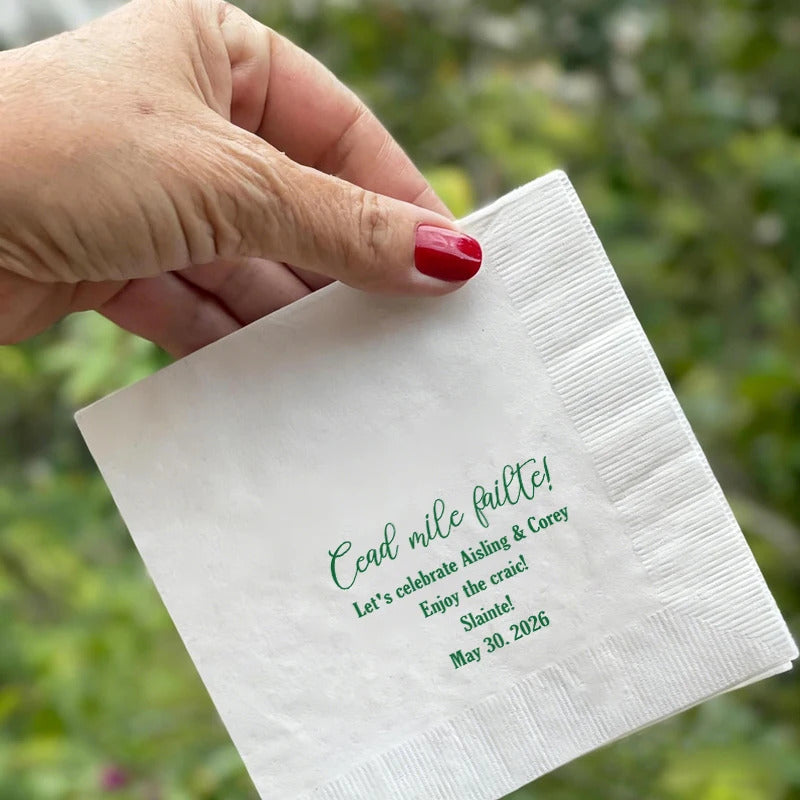 Cead mile failte!
Let's celebrate Aisling & Corey
Enjoy the craic!
Slainte!
May 30. 2026